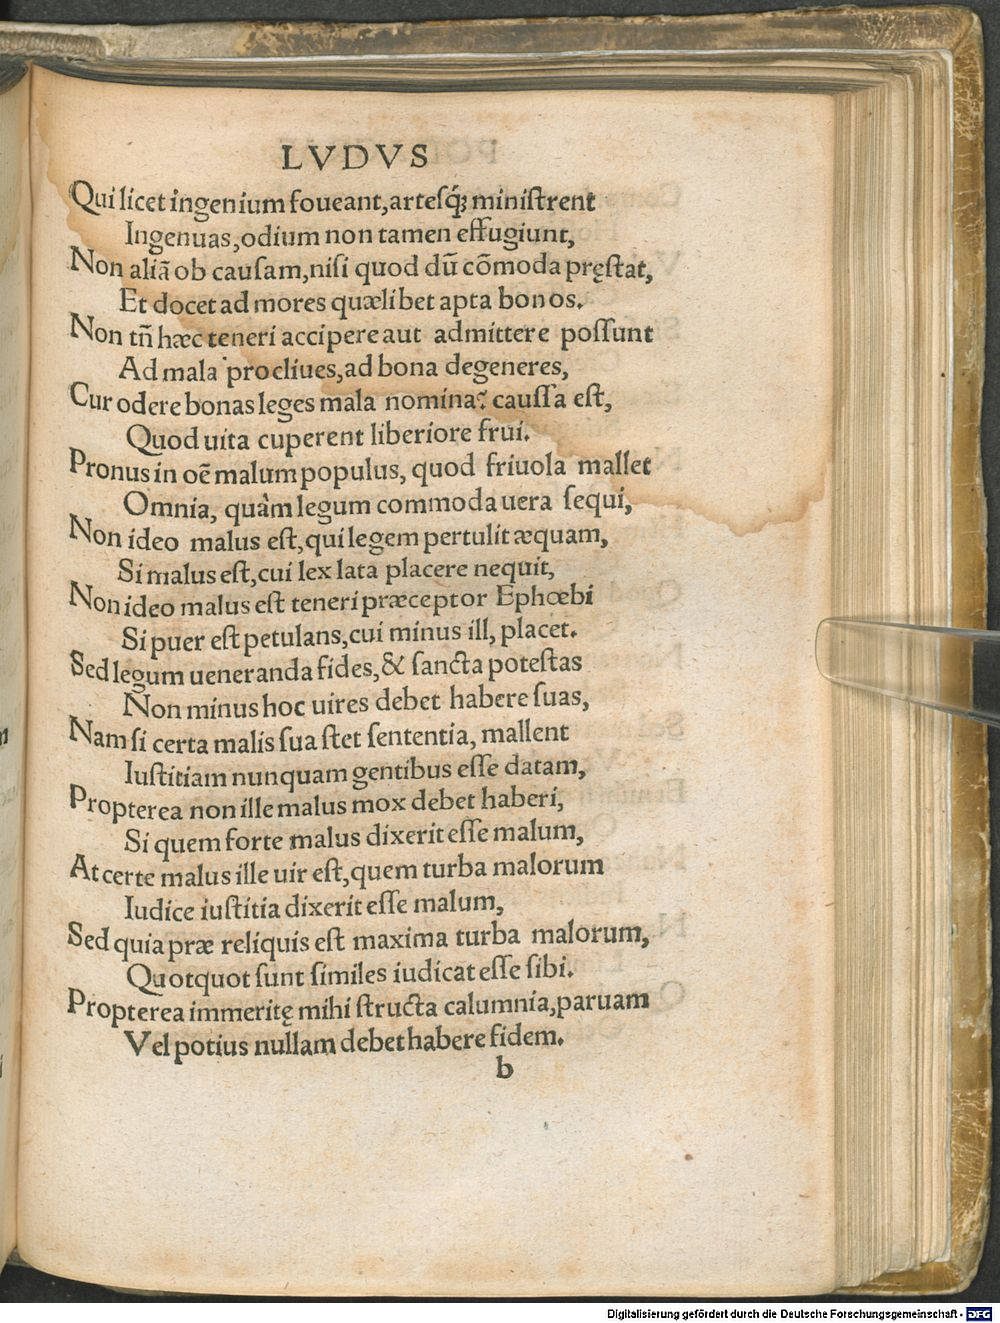 LVDVS
Qui licet ingenium foueant, artesq́; miniſtrent
Ingenuas, odium non tamen effugiunt,
Non aliā ob cauſam, niſi quod dū cōmoda pręſtat,
Et docet ad mores quælibet apta bonos.
Non tñ hæc teneri accipere aut admittere poſſunt
Ad mala procliues, ad bona degeneres,
Cur odere bonas leges mala nomina? cauſſa eſt,
Quod uita cuperent liberiore frui.
Pronus in oē malum populus, quod friuola mallet
Omnia, quàm legum commoda uera ſequi,
Non ideo malus eſt, qui legem pertulit æquam,
Si malus eſt, cui lex lata placere nequit,
Non ideo malus eſt teneri præceptor Ephœbi
Si puer eſt petulans, cui minus ill, placet.
Sed legum ueneranda fides, & ſancta poteſtas
Non minus hoc uires debet habere ſuas,
Nam ſi certa malis ſua ſtet ſententia, mallent
Iuſtitiam nunquam gentibus eſſe datam,
Propterea non ille malus mox debet haberi,
Si quem forte malus dixerit eſſe malum,
At certe malus ille uir eſt, quem turba malorum
Iudice iuſtitia dixerit eſſe malum,
Sed quia præ reliquis eſt maxima turba malorum,
Quotquot ſunt ſimiles iudicat eſſe ſibi.
Propterea immeritę mihi ſtructa calumnia, paruam
Vel potius nullam debet habere fidem.
b
Digitalisierung gefördert durch die Deutsche Forschungsgemeinschaft - DFG